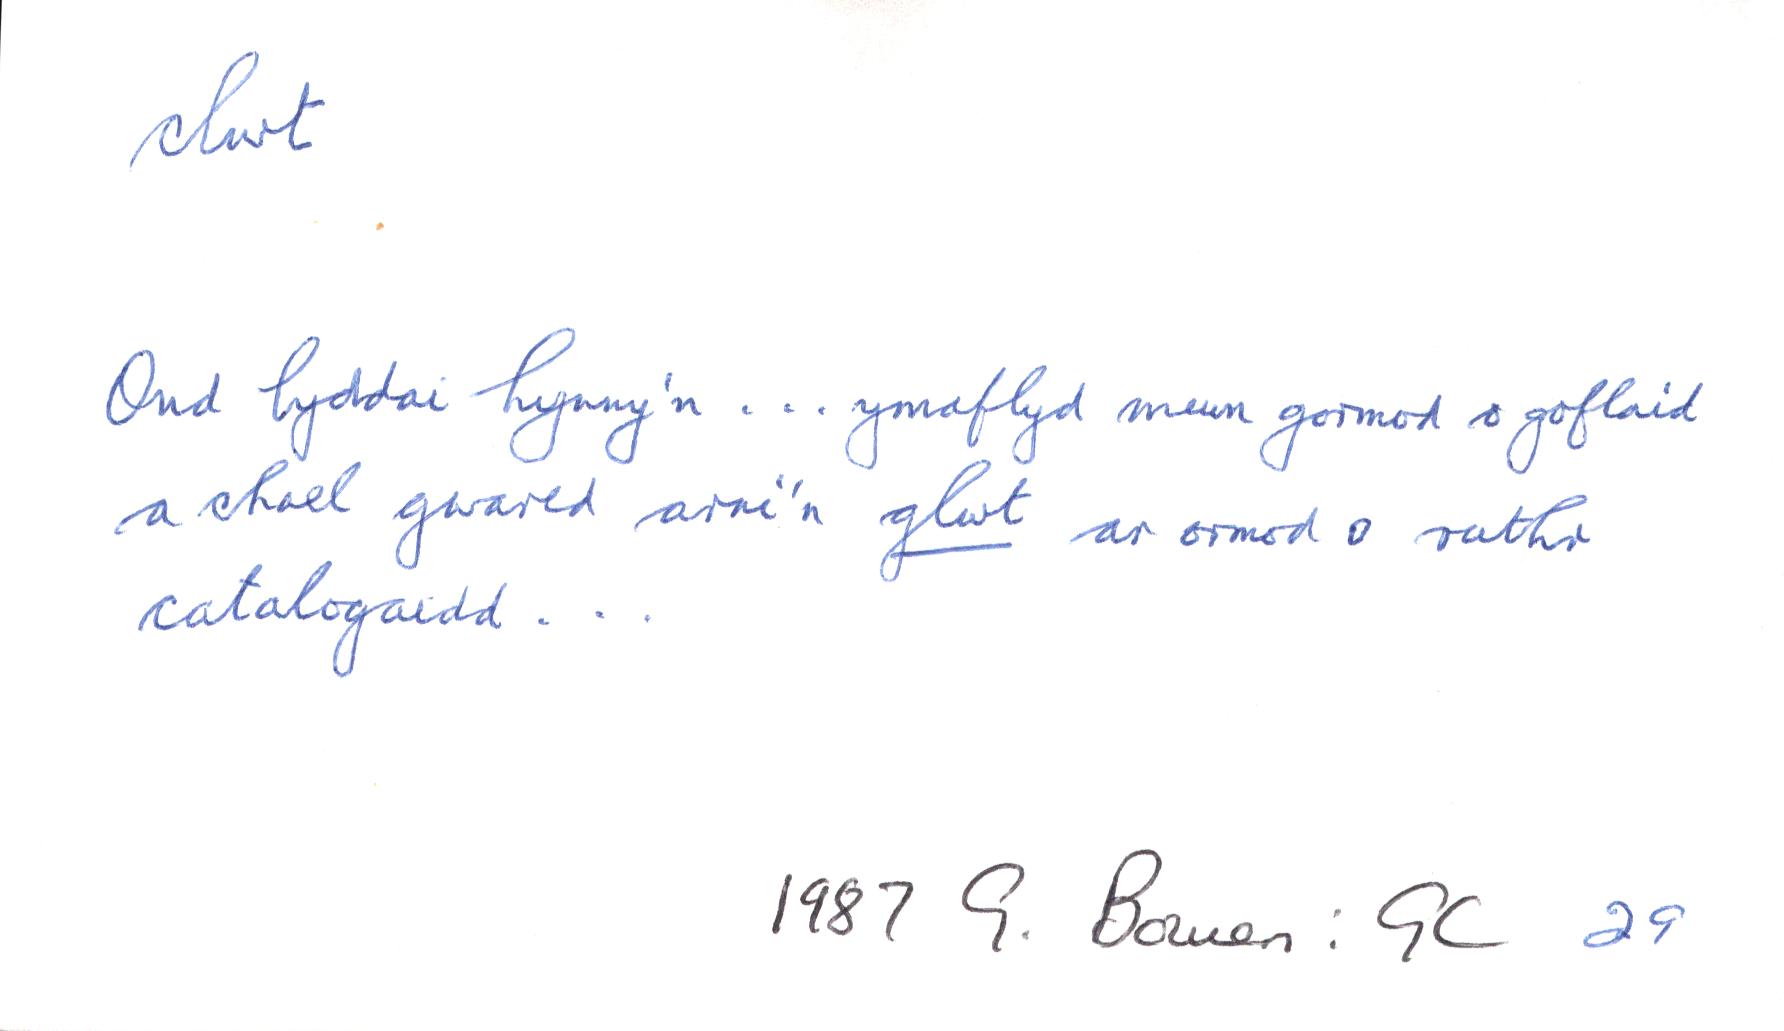 clwt
Ond byddai hynny'n . . . ymaflyd mewn gormod o goflaid
a chael gwared arni'n glwt ar ormod o ruthr
catalogaidd . . .
1987 G. Bowen : GC 29